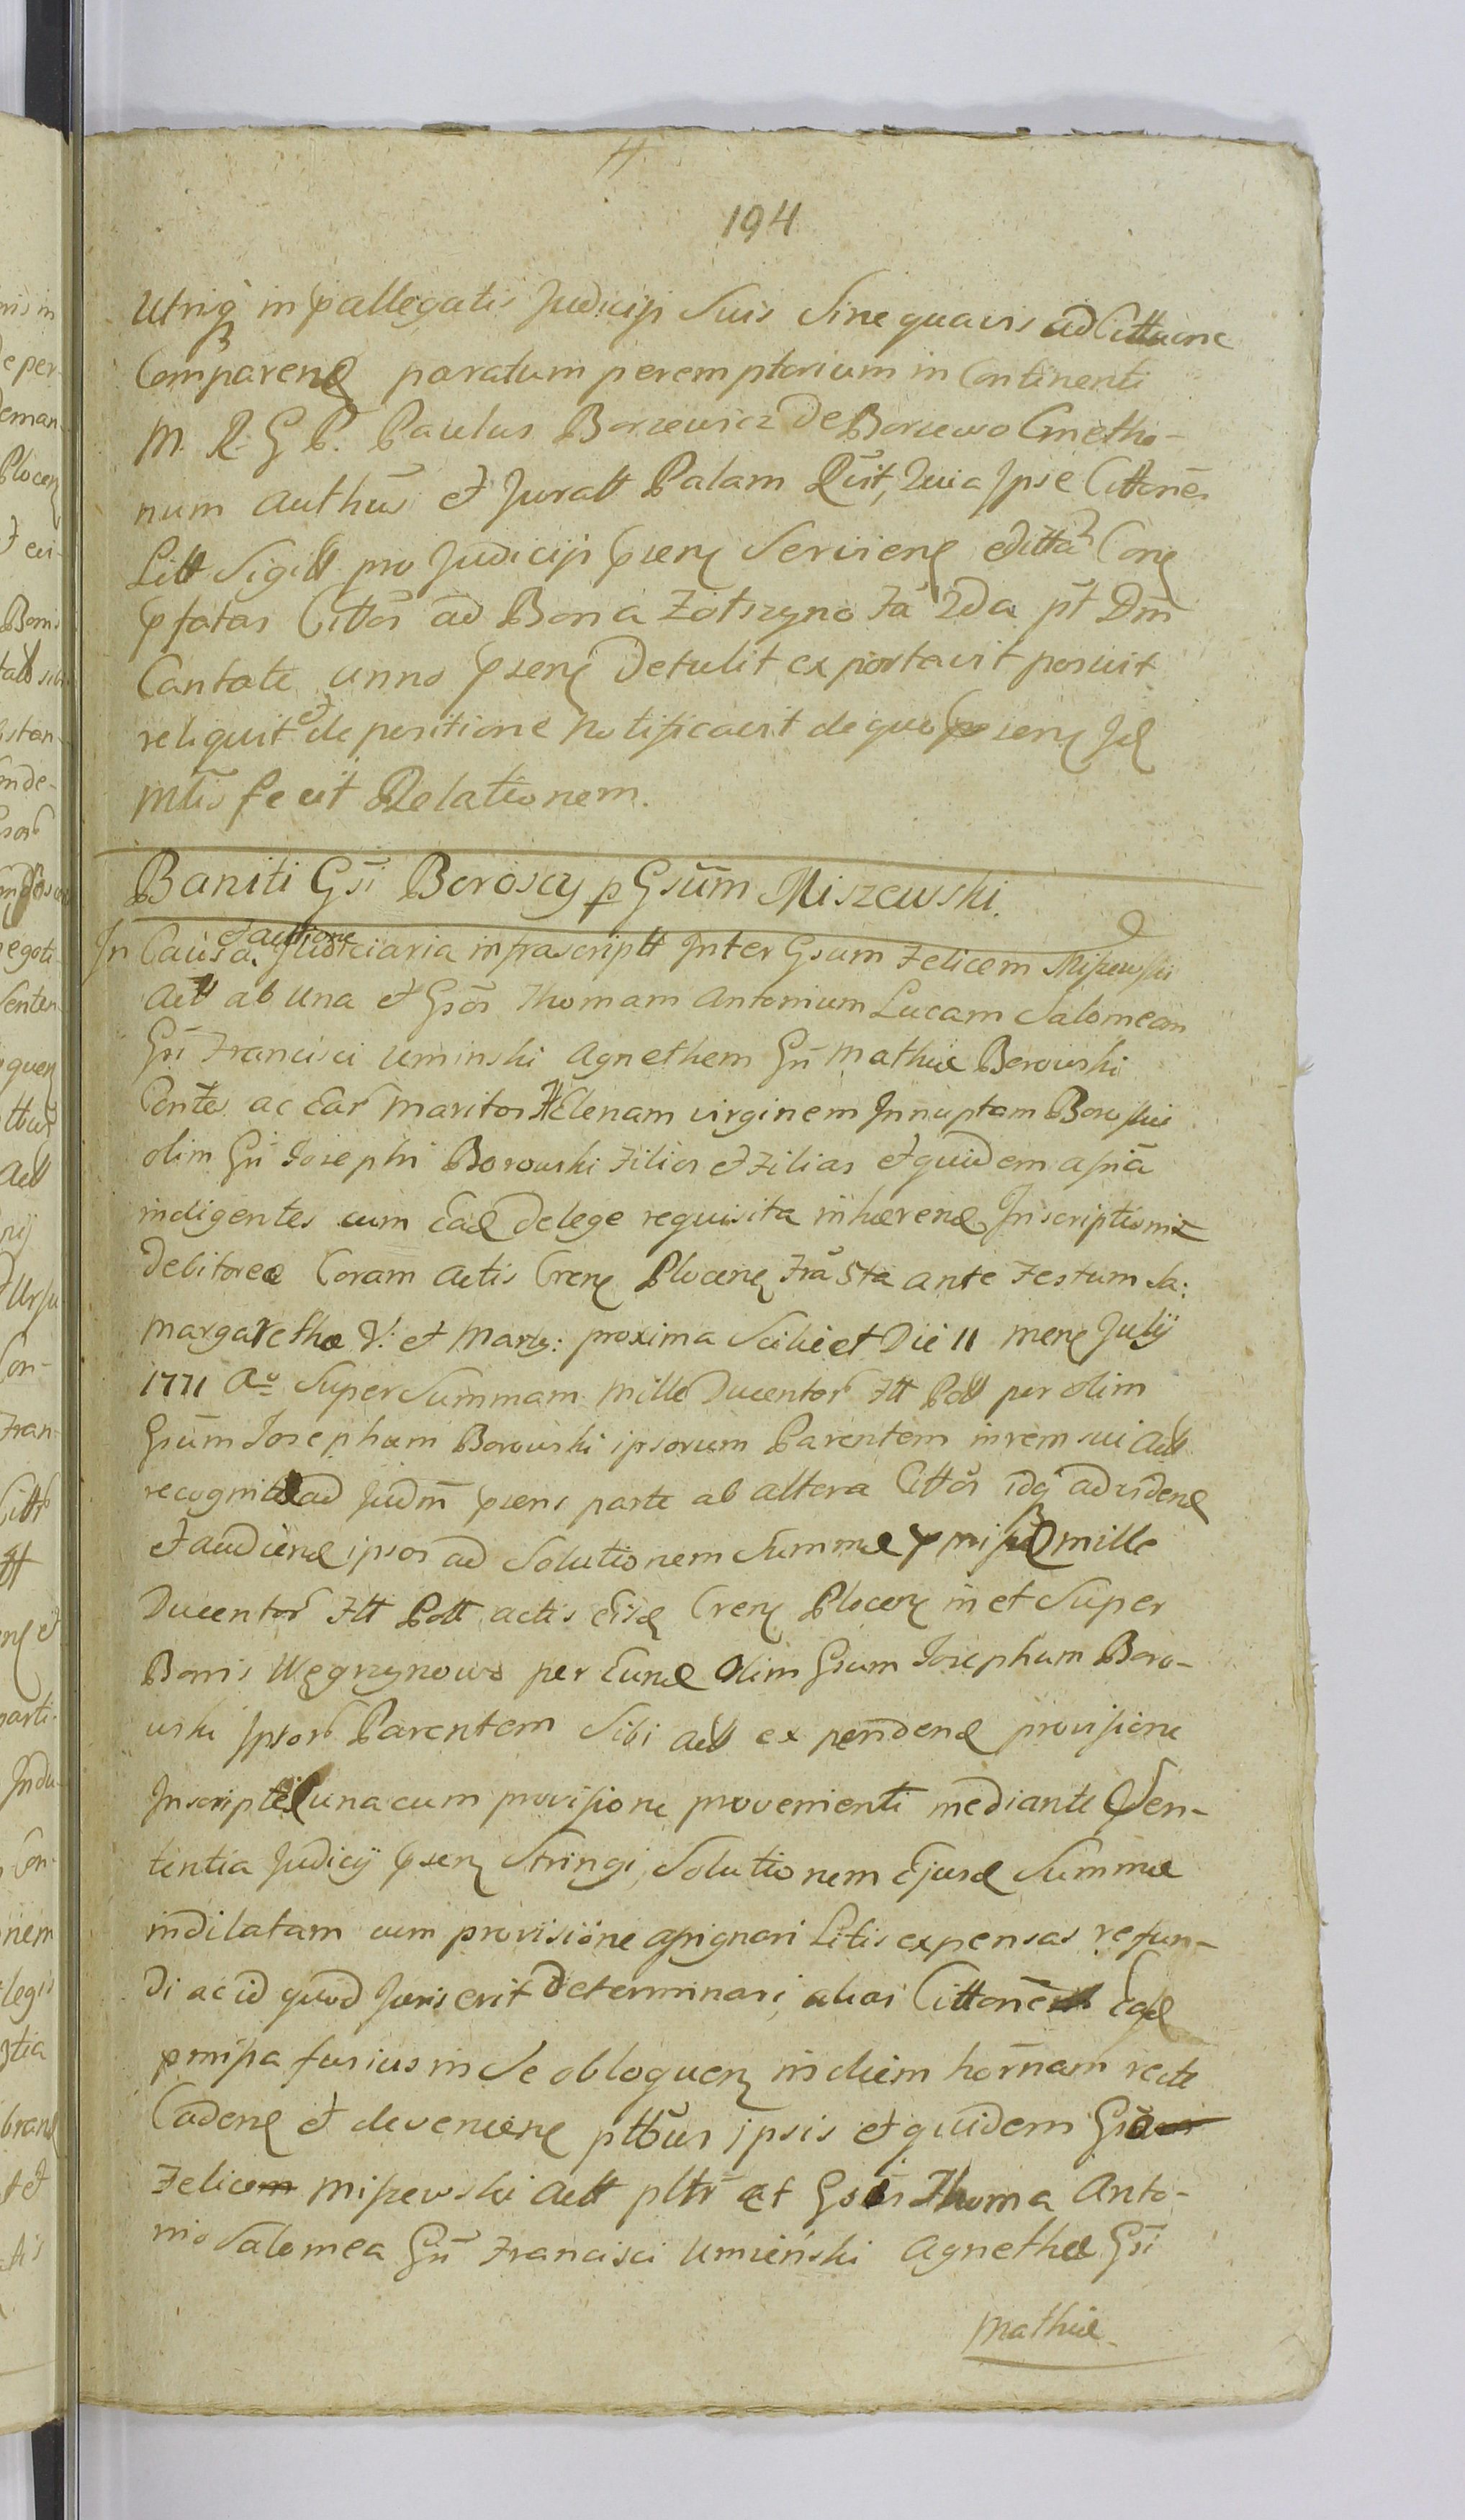 194
Utriq in pallegatis Judicijs Suis Sine quavis ad Cittaone
Comparend paratum peremptorium in Continenti
M. R. G. P. Paulus Borzewicz de Borzewo Cmetho-
num Authūs et Juratt Palam Rūit, Quia Ipse Cittonēs
Litt Sigill pro Judicijs psenz Servienz editta Conz
pfatas Cittōs ad Bona Zotszyno Fā 2da pt Dm
Cantate anno psenz Detulit exportavit posuit
reliquit et de positione Notificavit de quo psenz Jd
Mtis fecit Relationem.
Baniti Gsi Boroscy p Gsūm Miszewski.
In Causa et actione Judiciaria infrascriptt Inter Gsum Felicem Miszewski
Actt ab Una et Gsōs Thomam Antonium Lucam Salomeam
Gsi Francisci Uminski Agnethem Gsi Mathiæ Borowski
Contes ac Ear maritos Helenam virginem Innuptam Borowskie
olim Gsi Josephi Borowski Filios et Filias et quidem assñā
indigentes cum Ead de lege requisita inhærend Inscriptioni
debitorea Coram Actis Crenz Plocenz Fria 5ta ante Festum Sa:
Margarethæ V: et Marty: proxima Scilicet Die 11 Menz Julij
1771 Ao Super Summam Mille Ducentor Fll Poll per olim
Gsūm Josephum Borowski ipsorum Parentem in rem sui Actt
recognit ad Judm psens parte ab altera Cittōs idq ad vidend
et audiend ipsos ad Solutionem Summæ pmissæ mille
Ducentor Fll Poll actis Eisd Crenz Plocenz in et Super
Bonis Węgrzynowo per Eund Olim Gsum Josephum Boro-
wski Ipsor Parentem Sibi Actt ex pendend provisione
Inscriptæ una cum provisione provenienti mediante Sen-
tentia Judicij psenz Stringi, Solutionem Ejusd Summæ
indilatam cum provisione assignari Litis expensas refun-
di ac id quod Juris erit determinari, alias Cittonē Ead
pmissa fusius in Se obloquenz in diem hornam recte
Cadend et devenienz pttbus ipsis et quidem Gso
Felice Miszewski Actt pltr et Gsis Thoma Anto-
nio Salomea Gsi Francisci Umieński Agnethæ Gsi
Mathiæ